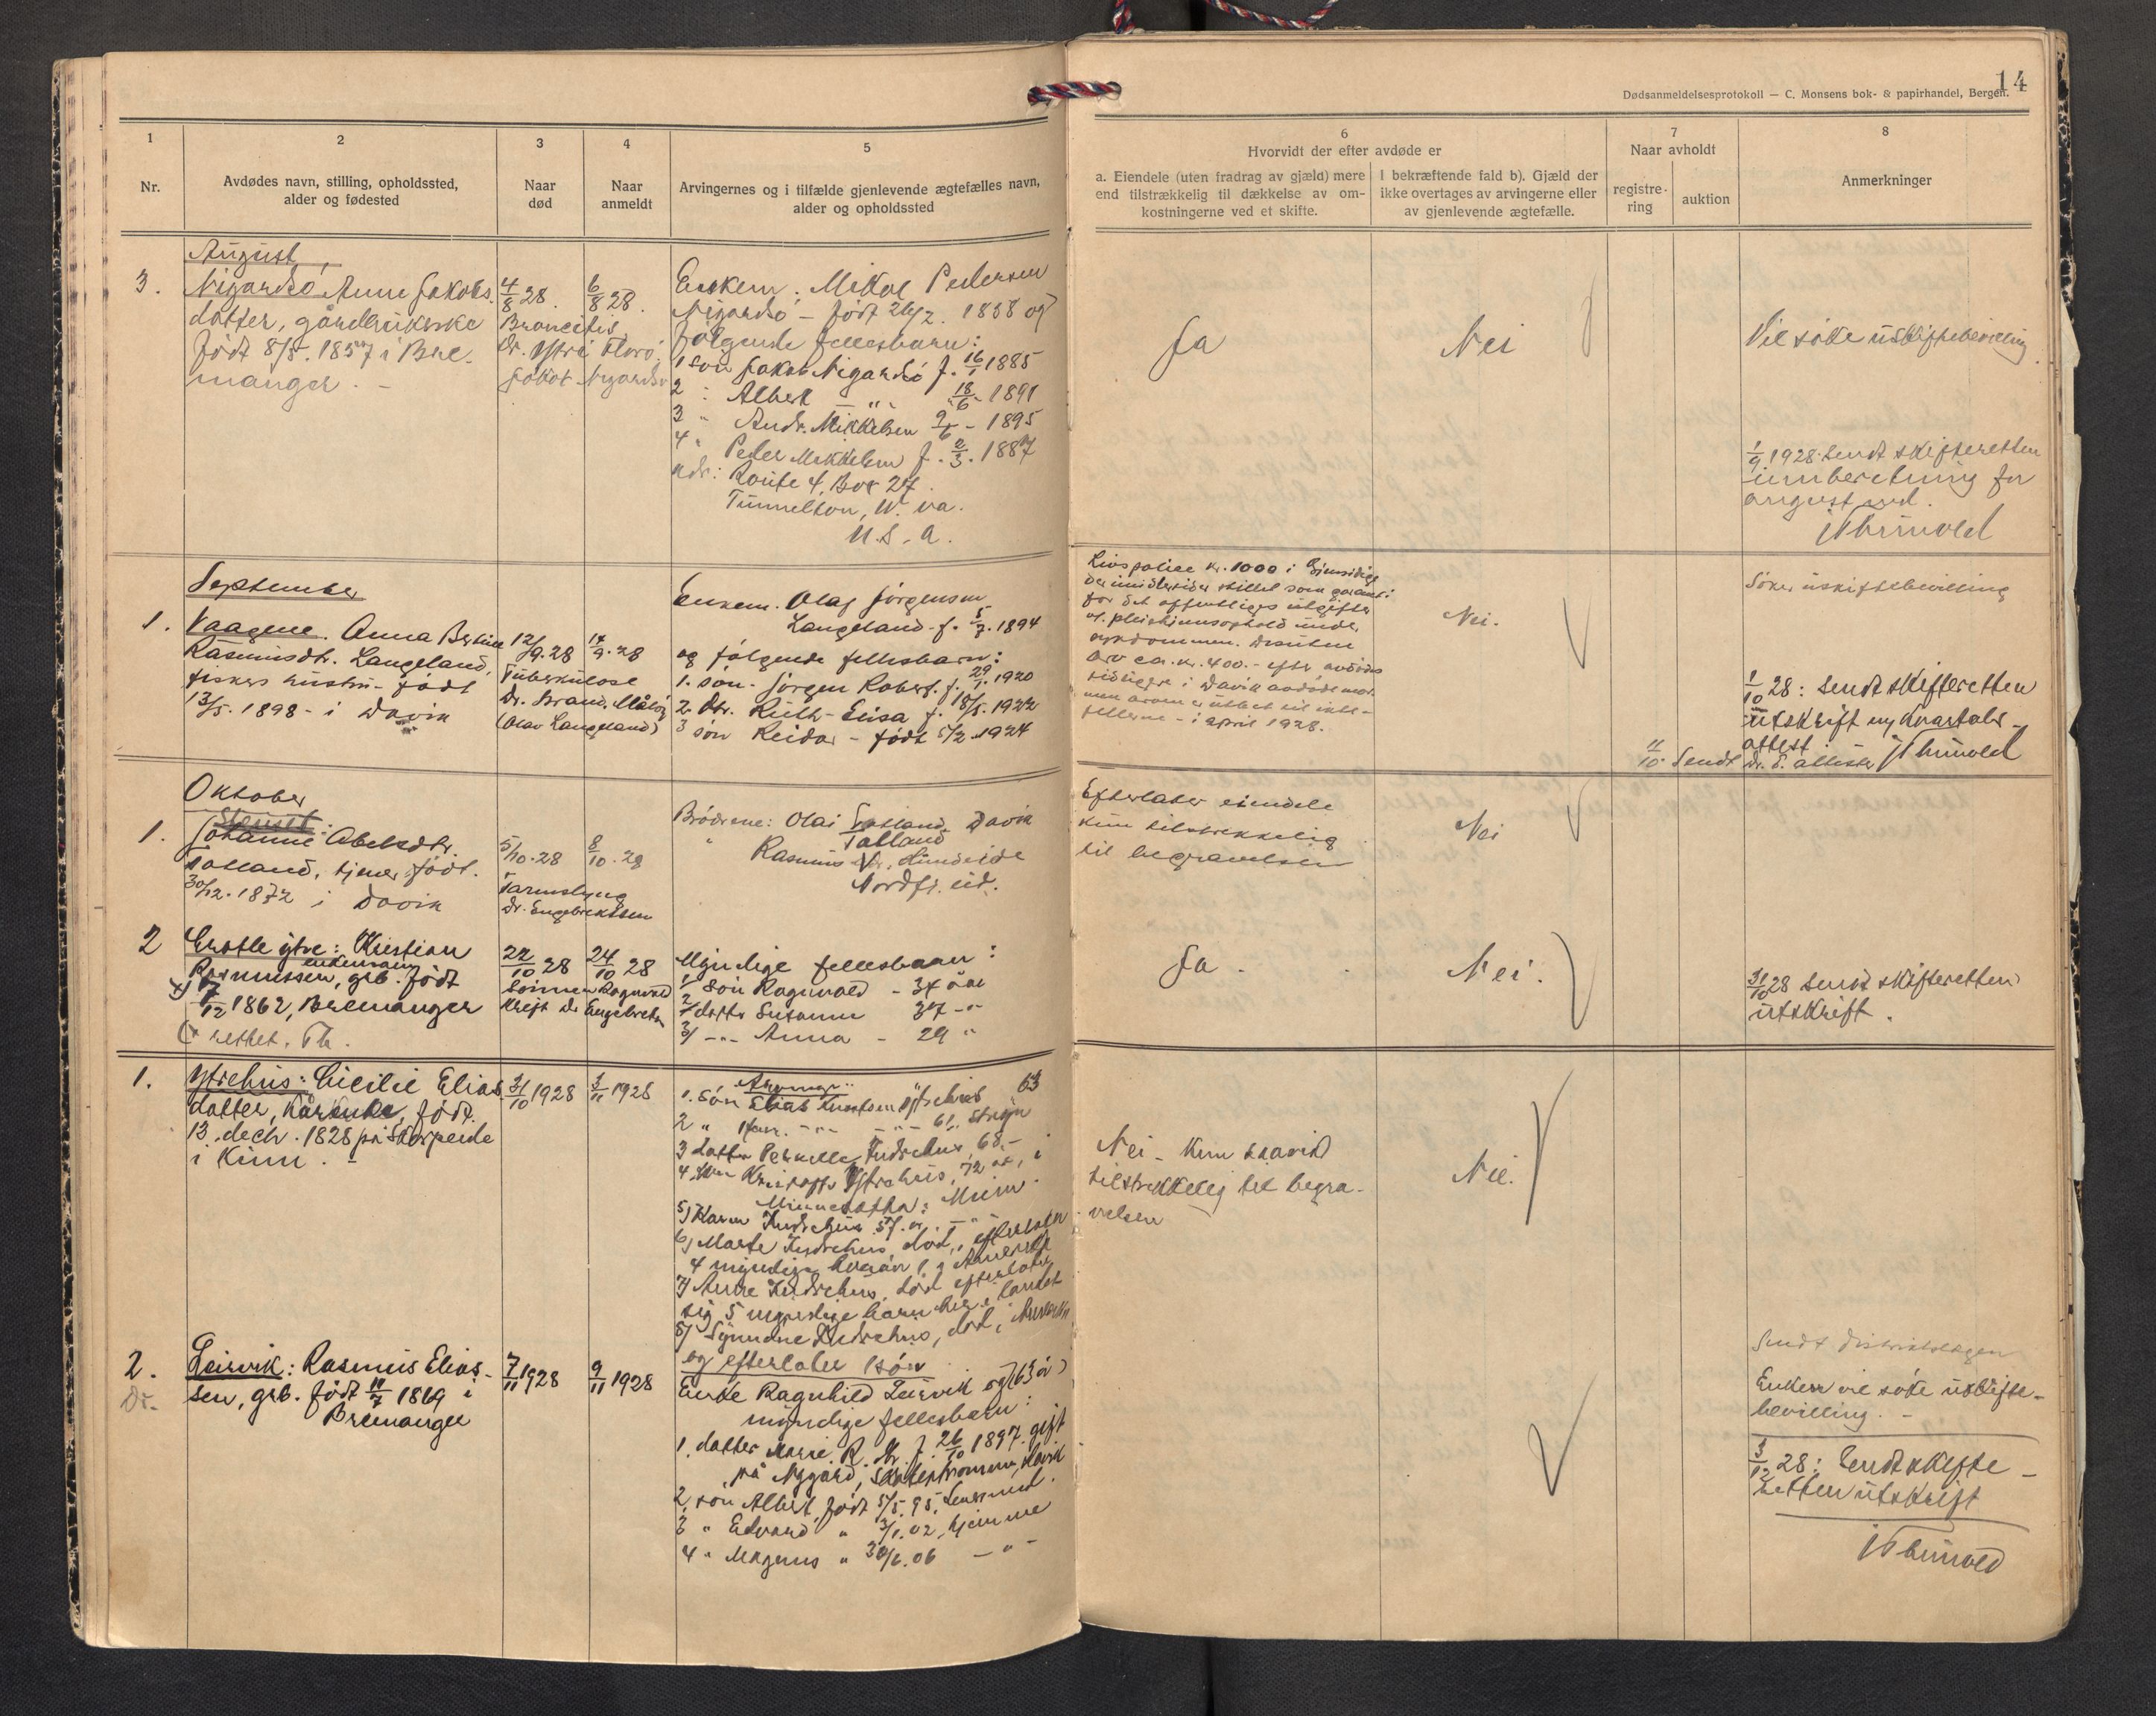 14
Dødsanmeldelsesprotokoll — C. Monsens bok- & papirhandel, Bergen.
1
Nr.
2
Avdødes navn, stilling, opholdssted,
alder og fødested
3
Naar
død
4
Naar
anmeldt
5
Arvingernes og i tilfælde gjenlevende ægtefælles navn,
alder og opholdssted
6
Hvorvidt der efter avdøde er
a. Eiendele (uten fradrag av gjæld) mere
end tilstrækkelig til dækkelse av om-
kostningerne ved et skifte.
I bekræftende fald b). Gjæld der
ikke overtages av arvingerne eller
av gjenlevende ægtefælle.
7
Naar avholdt
registre-
ring
auktion
8
Anmerkninger
August
3.
Nigardsö Anne Jakobs.
datter, gårdbrukerske
født 8/5. 1857 i Bre-
manger. -
4/8 28.
6/8 28.
Broncitis
Dr. Ytri Florö
Jakob Nigardsö
Enkem. Mikal Pedersen
Nigardsö - født 26/2. 1858 og
følgende fellesbarn:
1 søn Jakob Nigardsö f. 16/1 1885
2 " Albert — " — 18/6 - 1891
3 " Andr. Mikkelsen 9/6 - 1895
4 " Peder Mikkelsen f. 2/3. 1887
adr: Route 4, Box 27.
Tunnelton, W. va.
U.S.A.
Ja
Nei
Vil søke uskiftebevilling
1/9 1928 sendt skifteretten
innberetning for
august md.
September
1.
Vaagene. Anna Bertine
Rasmusdtr. Langeland,
fiskers hustru - født
13/5. 1898 - i Davik
12/9. 28
14/9. 28
Tuberkulose
Dr. Brand, Måløy
(Olav Langeland)
Enkem. Olaf Jörgensen
Langeland - f. 5/7. 1894
og følgende fellesbarn:
1. søn. Jörgen Robert. f. 29/1. 1920
2. Dtr. Ruth-Elisa f. 18/5. 1922
3 søn Reidar - født 5/2. 1924
Livspolice kr. 1000 i Gjensidige
der imidlertid er stillet som garanti
for det offentliges utgifter
under
sykdommen. Desuten
arv ca. kr. 400.- efter avdødes
i Davik
i april 1928.
Nei.
Søker uskiftebevilling
1/10 28: Sendt skifteretten
utskrift og kvartals-
attest
11/10. Sendt Dr. S. attester
Oktober
1.
Johanne Abelsdtr.
Tolland, tjener, født.
30/12. 1872 i Davik
5/10. 28
8/10. 28
Tarmslyng
Dr. Engebretsen
Brödrene: Olai Tolland, Davik
" Rasmus Tolland
Nordfj. eid.
Efterlater eiendele
kun tilstrekkelig
til begravelsen
Nei
2
Grotle ytre: Kristian
enkemann
Rasmussen, grb. født
x) 7/12 1862, Bremanger
(x rettet. Th.
22/10 28
24/10 28
Sönnen Ragnvald
Kreft Dr Engebretsen
Myndige fellesbarn:
1/ Søn Ragnvald - 34 år
2/ datter Susanne 37 - "
3/ - " - Anna - 29 "
Ja.
Nei.
31/10 28 sendt skifteretten
utskrift.
1.
Ytrehus: Cecilie Elias
datter, født
13. decbr. 1828 på
i Kinn. -
31/10 1928
3/11 1928
Arvinger
1. Søn Elias Knutsen Ytrehus 63
2 " - " - - " - 61. Stryn
3 Datter Pernelle Indrehus, 68. -
4. Ytrehus, 72 år, i
Minnesotha: Minn.
5) Karen Indrehus 57 år. — " —
6) Marte Indrehus, død, efterlater
4 myndige barn i Amerika
7) Anne Indrehus, død efterlater
sig 5 myndige barn her i landet
8) Synneve Indrehus, død, i Amerika
og efterlater 1 søn
Nei - kun
tilstrekkelig til begra-
velsen
Nei.
2.
Dr.
Leirvik: Rasmus Elias-
sen, grb. født 11/7 1869 i
Bremanger
7/11 1928
9/11 1928
Enke Ragnhild Leirvik og (63 år)
myndige fellesbarn:
1. datter Marie R. f. 26/10 1897. gift
på Nygård, Skatestrømmen, Davik
2, søn Albert, født 5/5. 95.
3 " Edvard " 3/1. 02, hjemme
4 " Magnus " 30/6. 06 — " —
Sendt
Enken vil søke uskifte-
bevilling. -
3/12 28: Sendt skifte-
retten utskrift